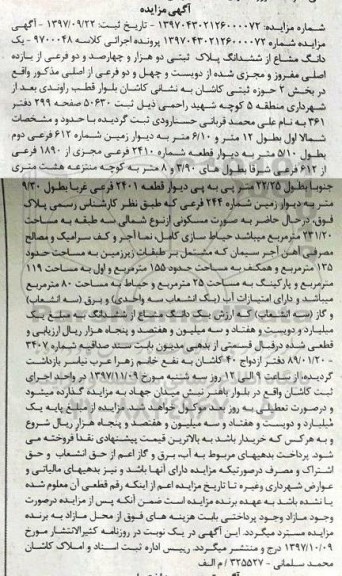 آگهی مزایده
شماره مزایده: ۱۳۹۷۰۴۳۰۲۱۲۶۰۰۰۰۷۲ - تاریخ ثبت: ۱۳۹۷/۰۹/۲۲ - آگهی
مزایده شماره ۱۳۹۷۰۴۳۰۲۱۲۶۰۰۰۰۷۲ پرونده اجرائی کلاسه ۹۷۰۰۰۴۸ - یک
دانگ مشاع از ششدانگ پلاک ثبتی دو هزار و چهارصد و دو فرعی از یازده
اصلی مفروز و مجزی شده از دویست و چهل و دو فرعی از اصلی مذکور واقع
در بخش ۲ حوزه ثبتی کاشان به نشانی کاشان بلوار قطب راوندی بعد از
شهرداری منطقه ۵ کوچه شهید راحمی ذیل ثبت ۵۰۶۳۰ صفحه ۲۹۹ دفتر
۳۶۱ به نام علی محمد قربانی حسنارودی ثبت گردیده با حدود و مشخصات
شمالا اول بطول ۱۲ متر و ۶/۱۰ متر به دیوار زمین شماره ۶۱۲ فرعی دوم
بطول ۵/۱۰ متر به دیوار قطعه شماره ۲۴۱۰ فرعی مجزی از ۱۸۹۰ فرعی
از ۶۱۲ فرعی شرقا بطول های ۳/۹۰ و ۸ متر به کوچه منتزعه هشت متری
جنوبا بطول ۲۲/۲۵ متر پی به پی دیوار قطعه ۲۴۰۱ فرعی غربا بطول ۹/۳۰
متر به دیوار زمین شماره ۲۴۴ فرعی که طبق نظر کارشناس رسمی پلاک
فوق، درحال حاضر به صورت مسکونی ازنوع شمالی سه طبقه به مساحت
۲۳۱/۲۰ مترمربع میباشد حیاط سازی کامل، نما آجر و کف سرامیک و مصالح
مصرفی آهن آجر سیمان که مشتمل بر طبقات زیرزمین به مساحت حدود
۱۳۵ مترمربع و همکف به مساحت حدود ۱۵۵ مترمربع و اول به مساحت ۱۱۹
مترمربع و پارکینگ به مساحت ۲۵ مترمربع و حیاط به مساحت ۸۰ مترمربع
میباشد و دارای امتیازات آب (یک انشعاب سه واحدی) و برق (سه انشعاب)
و گاز (سه انشعاب) که ارزش یک دانگ مشاع از ششدانگ به مبلغ یک
میلیارد و دویست و هفتاد و سه میلیون و هفتصد و پنجاه هزار ریال ارزیابی و
قطعی شده درقبال قسمتی از بدهی مدیون بابت سند صداقیه شماره ۳۴۰۷
- ۸۹/۰۱/۲۰ دفتر ازدواج ۴۰ کاشان به نفع خانم زهرا عرب نیاسر بازداشت
گردیده، از ساعت ۹ الی ۱۲ روز سه شنبه مورخ ۱۳۹۷/۱۱/۰۹ در واحد اجرای
ثبت کاشان واقع در بلوار باهنر نبش میدان جهاد به مزایده گذارده میشود
و درصورت تعطیلی به روز بعد موکول خواهد شد. مزایده از مبلغ پایه یک
میلیارد و دویست و هفتاد و سه میلیون و هفتصد و پنجاه هزار ریال شروع
و به هرکس که خریدار باشد به بالاترین قیمت پیشنهادی نقدا فروخته می
شود. پرداخت بدهیهای مربوط به آب برق و گاز اعم از حق انشعاب و حق
اشتراک و مصرف درصورتیکه مزایده دارای آنها باشد و نیز بدهیهای مالیاتی و
عوارض شهرداری وغیره تا تاریخ مزایده اعم از اینکه رقم قطعی آن معلوم شده
یا نشده باشد به عهده برنده مزایده است ضمن آنکه پس از مزایده درصورت
وجود مازاد وجوه پرداختی بابت هزینه های فوق از محل مازاد به برنده
مزایده مسترد میگردد. این آگهی در یک نوبت در روزنامه کثیرالانتشار مورخ
۱۳۹۷/۱۰/۰۹ درج و منتشر میگردد. رییس اداره ثبت اسناد و املاک کاشان
محمد سلمانی - ۳۲۵۵۲۷ / م الف